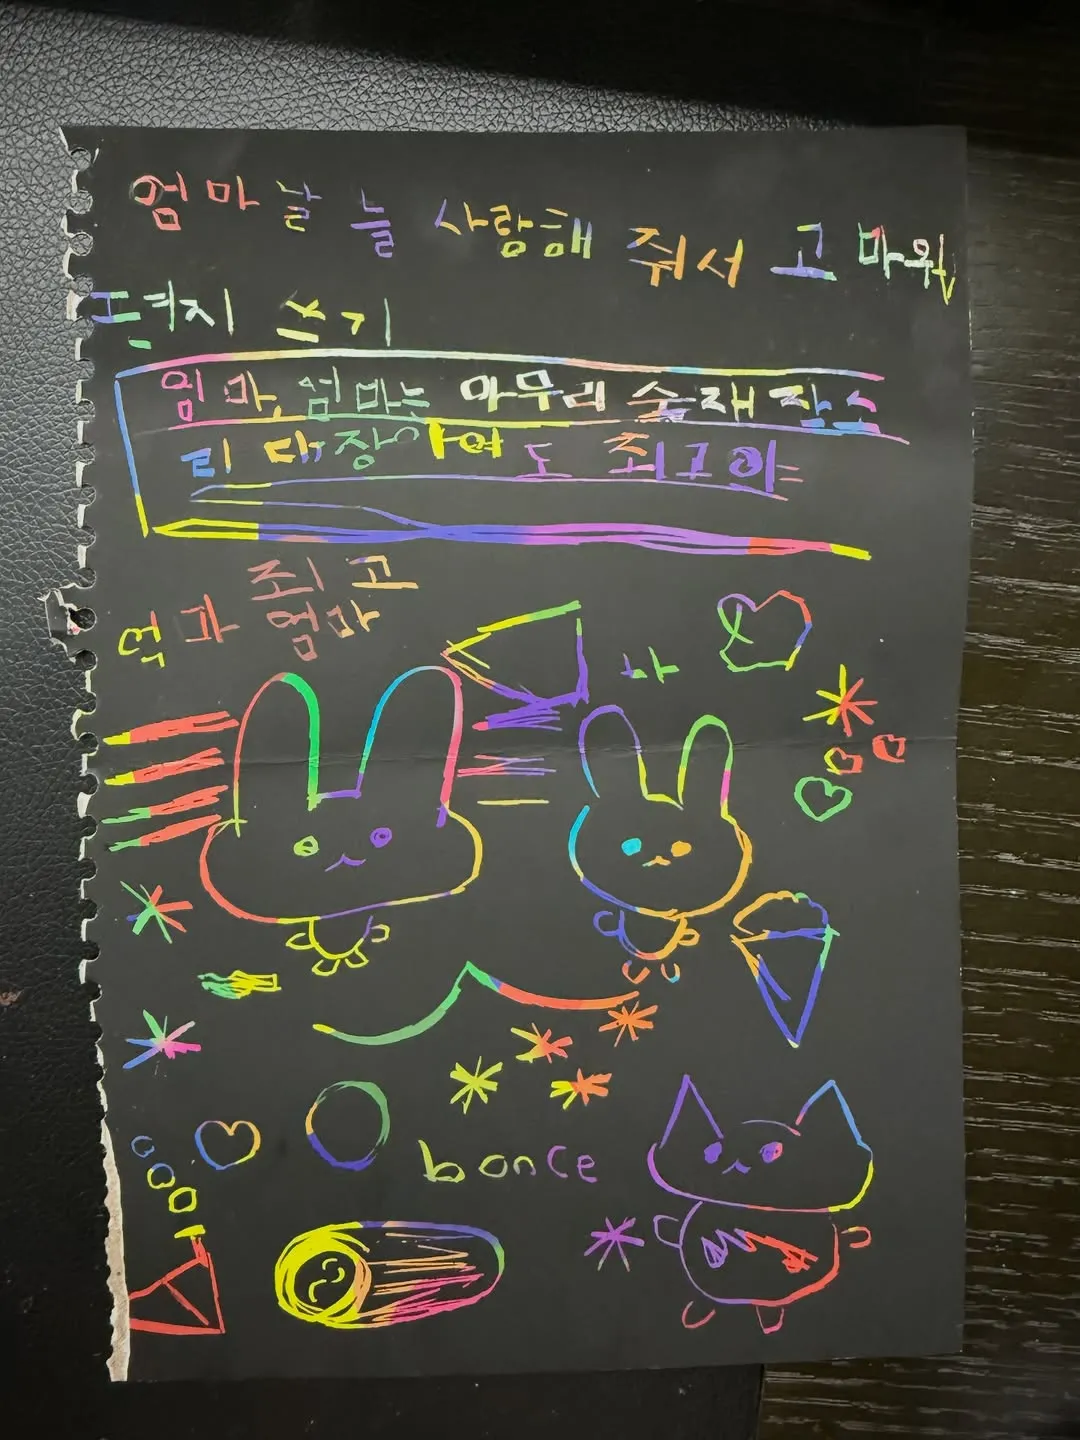 엄마날 늘 사랑해 줘서 고마워
편지 쓰기
엄마, 엄마는 아무리 술재 잔소
리 대장이여도 최고야
최고
엄마
하
bonce